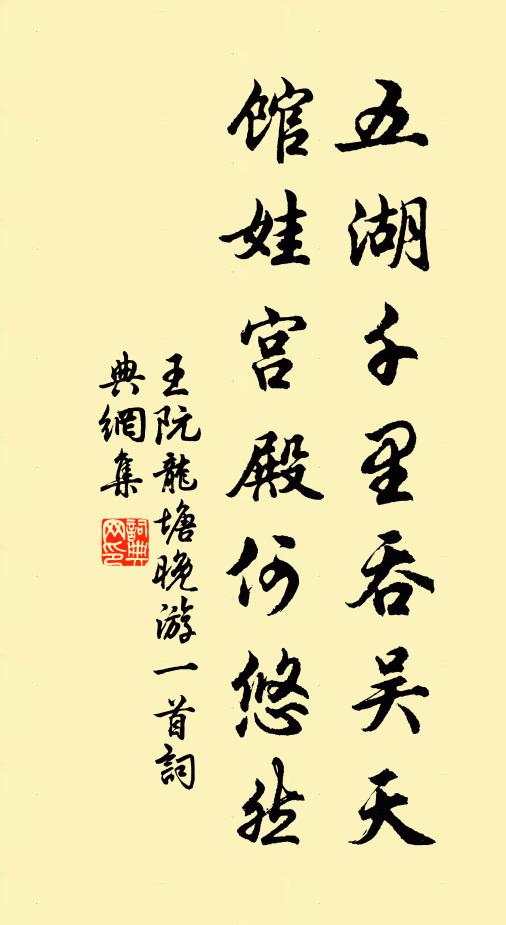 五湖千里吞吴天
馆娃宫殿何悠然
王阮龍塘晚游一首詞
典網集
詞典網印